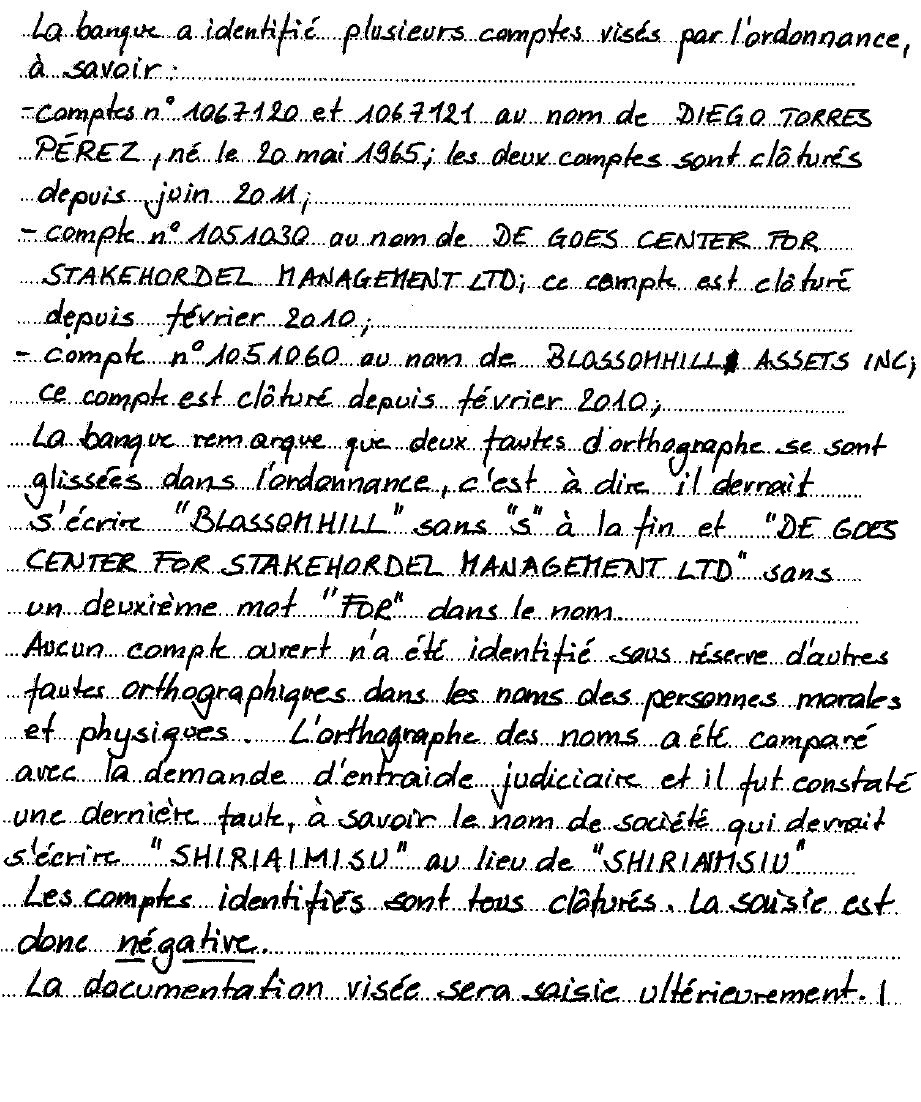 La banque a identifié plusieurs comptes visés par l'ordonnance,
à savoir:
-comptes n° 1067120 et 1067121 au nom de DIEGO TORRES
PÉREZ, né le 20 mai 1965; les deux comptes sont clôturés
depuis juin 2011;
- compte n° 1051030 au nom de DE GOES CENTER FOR
STAKEHORDEL MANAGEMENT LTD; ce compte est clôturé
depuis février 2010;
- compte n° 1051060 au nom de BLOSSOMHILL ASSETS INC;
ce compte est clôturé depuis février 2010;
La banque remarque que deux fautes d'orthographe se sont
glissées dans l'ordonnance, c'est à dire il devrait
s'écrire "BLOSSOMHILL" sans "s" à la fin et "DE GOES
CENTER FOR STAKEHORDEL MANAGEMENT LTD" sans
un deuxième mot "FOR" dans le nom.
Aucun compte ouvert n'a été identifié sous réserve d'autres
fautes orthographiques dans les noms des personnes morales
et physiques. L'orthographe des noms a été comparé
avec la demande d'entraide judiciaire et il fut constaté
une dernière faute, à savoir le nom de société qui devrait
s'écrire "SHIRIAIMISU" au lieu de "SHIRIAIMSIU"
Les comptes identifiés sont tous clôturés. La saisie est
donc négative.
La documentation visée sera saisie ultérieurement. |